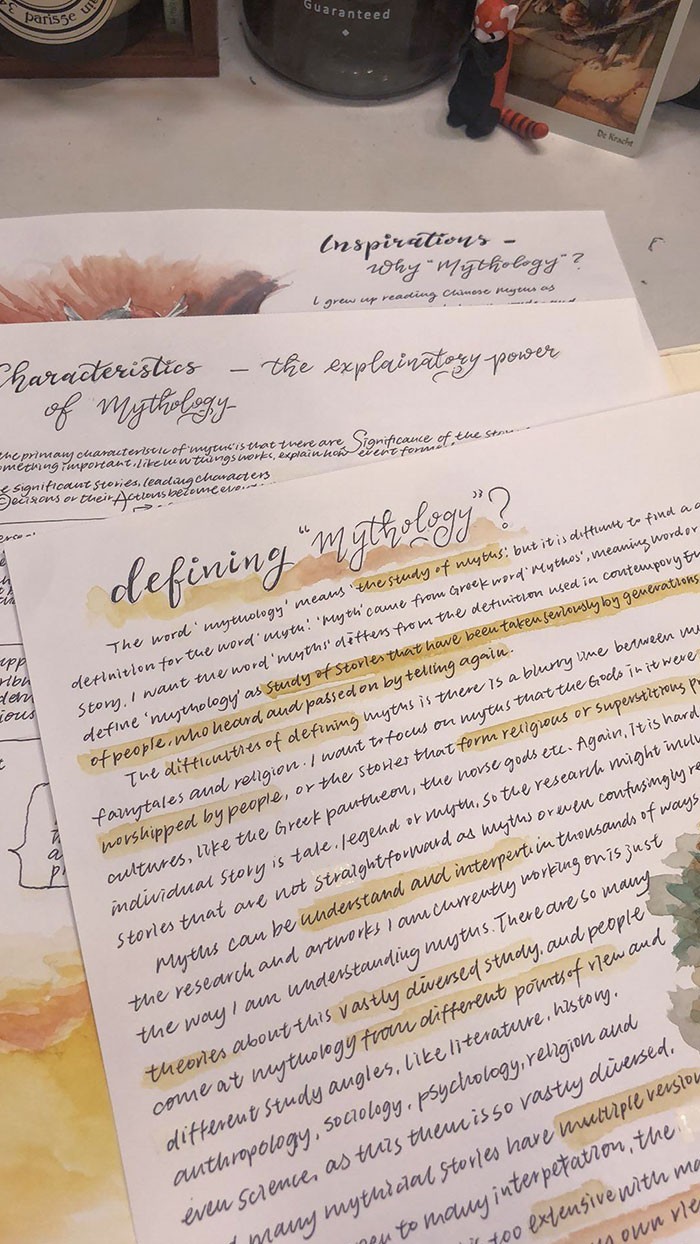 34 parisse un
Guaranteed
De Kracht
Inspirations -
Why "Mythology"?
I grew up reading Chinese Myths as
Characteristics - the explainatory power
of Mythology
the primary characteristic of 'myths' is that there are Significance of the
something important, like how things works, explain how event
significant stories, leading characters
Decisions or their Actions become
defining "Mythology"?
The word 'mythology' means 'the study of myths', but it is difficult to find a
definition for the word 'myth'. 'Myth' came from Greek word 'Mythos', meaning word or
story. I want the word 'myths' differs from the definition used in contemporary
define 'mythology' as study of stories that have been taken seriously by generations
of people, who heard and passed on by telling again.
The difficulties of defining myths is there is a blurry line between
fairytales and religion. I want to focus on myths that the Gods in it were
worshipped by people, or the stories that form religious or superstitious
cultures, like the Greek pantheon, the norse gods etc. Again, it is hard
individual story is tale, legend or myth, so the research might
stories that are not straightforward as myths or even confusingly
Myths can be understand and interpert in thousands of ways
the research and artworks I am currently working on is just
the way I am understanding myths. There are so many
theories about this vastly diversed study, and people
come at mythology from different points of view and
different study angles, like literature, history,
anthropology, sociology, psychology, religion and
even science, as this them is so vastly diversed.
many mythical stories have multiple version
to many interpetation, the
too extensive with
own